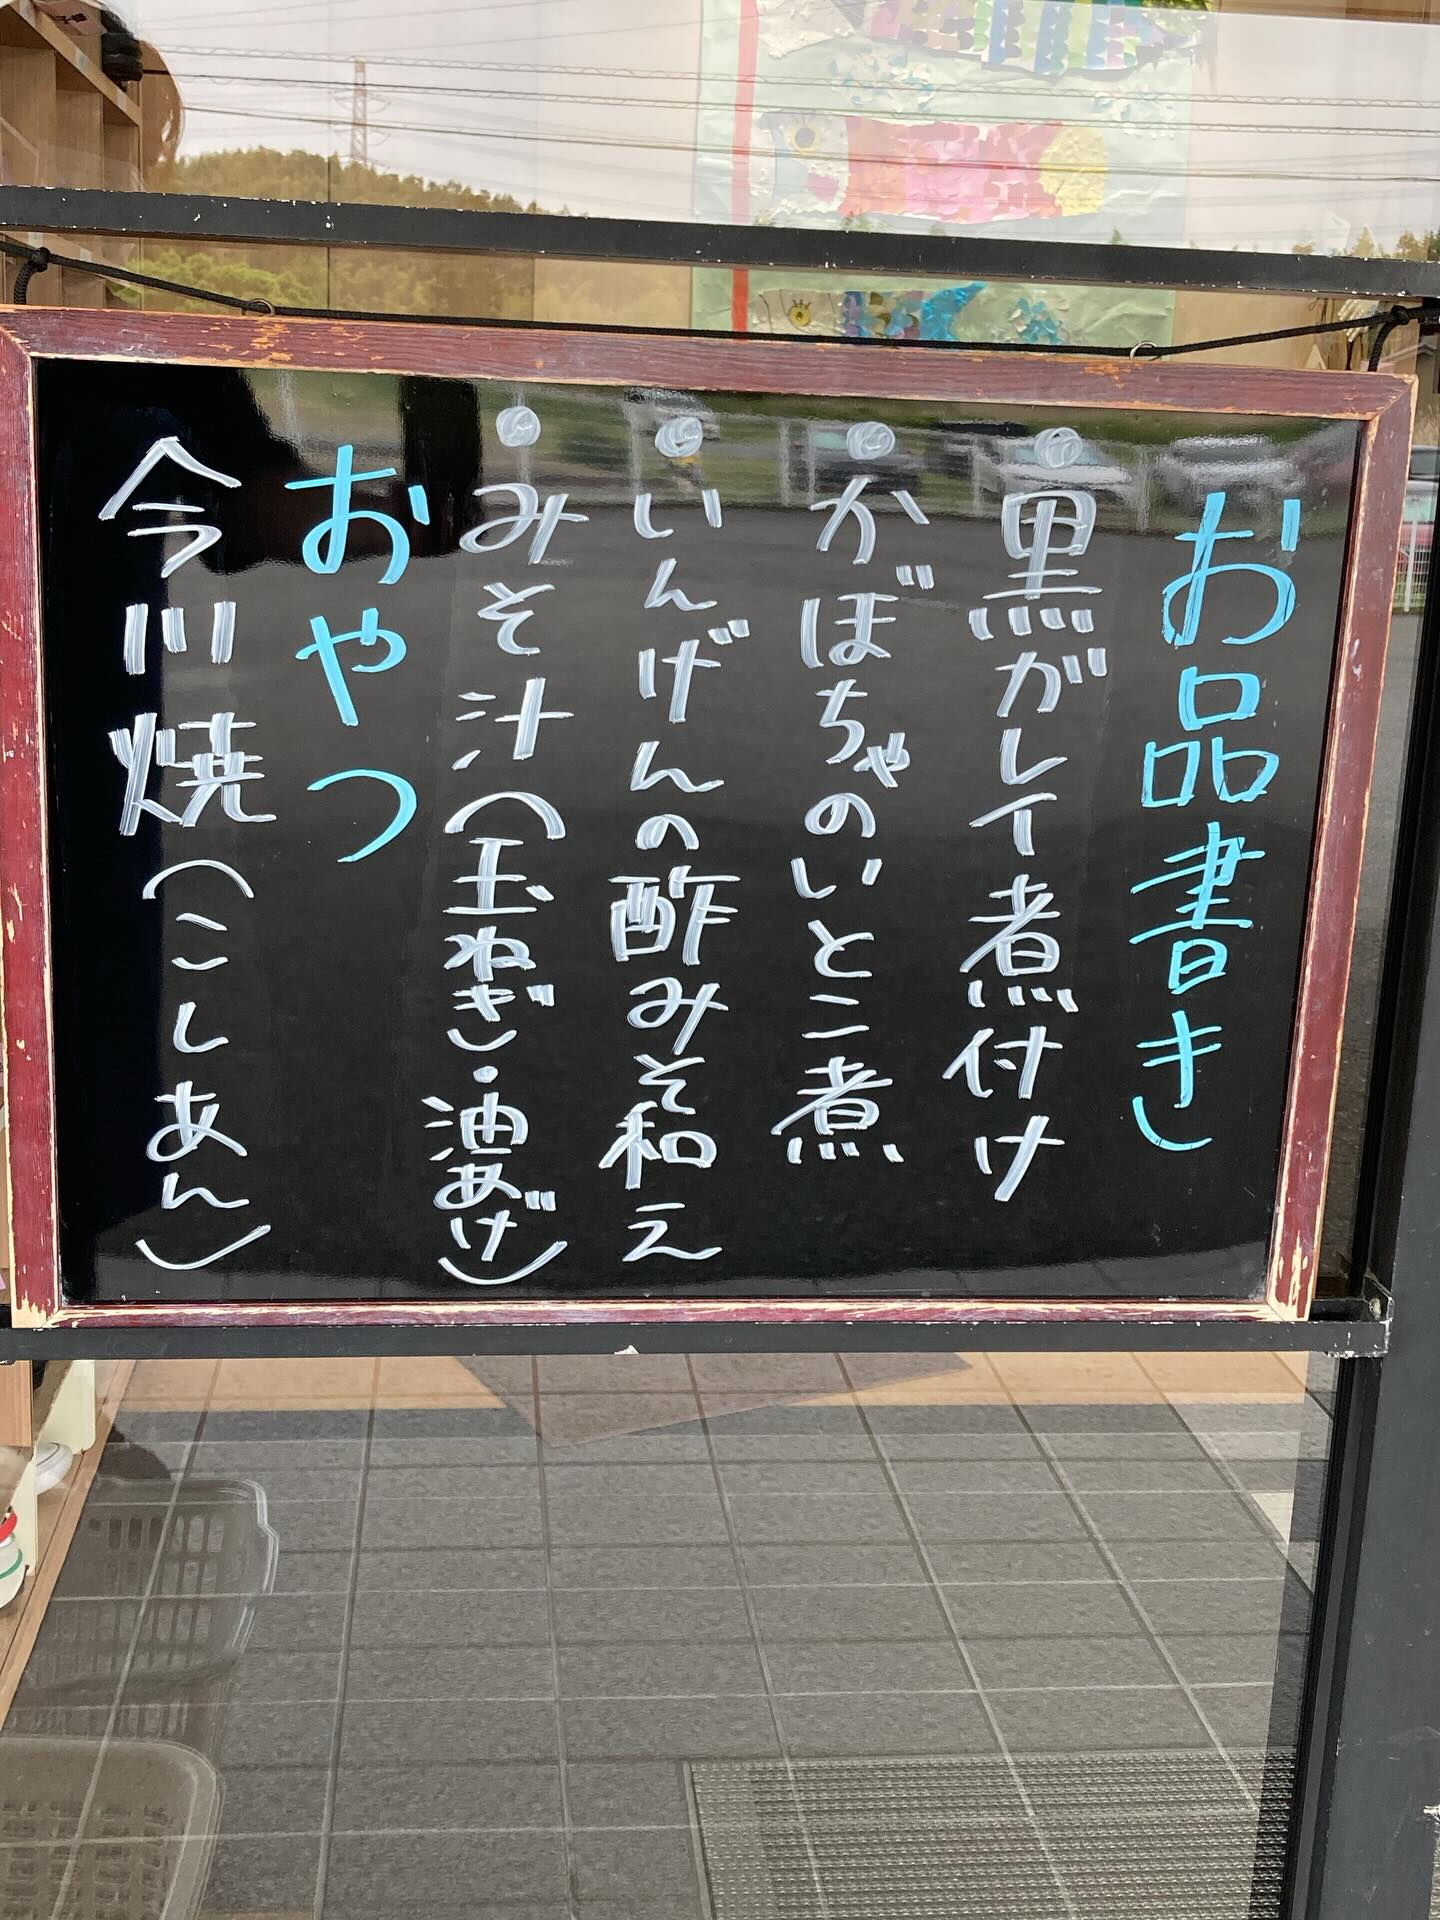 お品書き
・黒がレイ煮付け
・かぼちゃのいとこ煮
・いんげんの酢みそ和え
・みそ汁(玉ねぎ・油あげ)
おやつ
今川焼(こしあん)